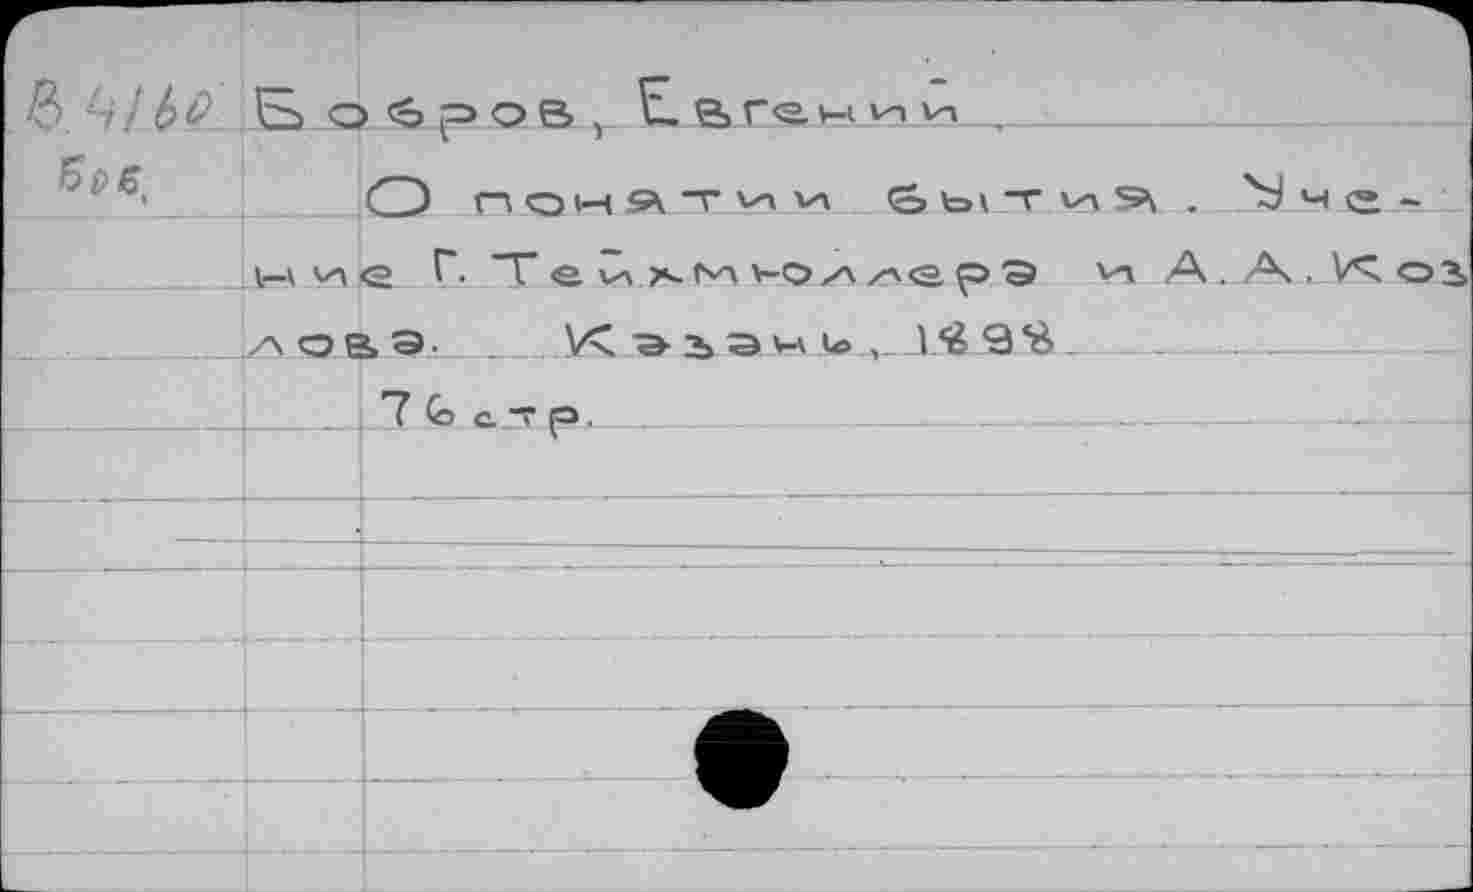 В.4160 Бобров, Евгений
Боб, О понятии бытия. Уче-
ние Г. Тейхмюллера и А. А. Коз
лова. Казань, 1898
76 стр.